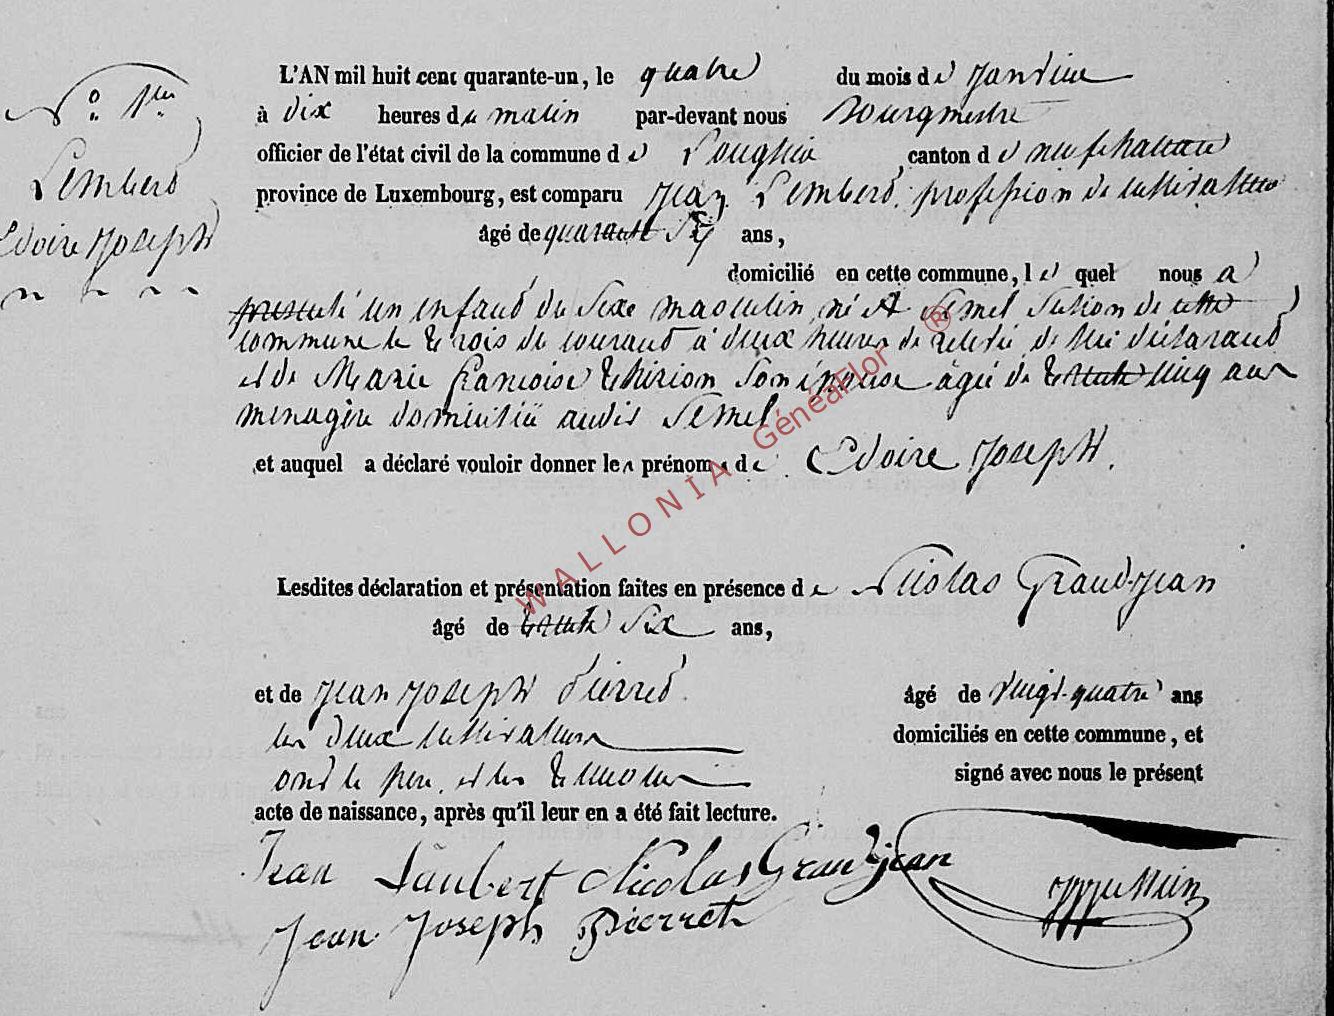 N° 1er
Lembert
Edoire Joseph
L'AN mil huit cent quarante-un, le quatre du mois de Janvier
à dix heures du matin par-devant nous Bourgmestre
officier de l'état civil de la commune de Longlier, canton de neufchateau
province de Luxembourg, est comparu Jean Lembert, profession de cultivateur
âgé de quarante six ans,
domicilié en cette commune, lequel nous a
presenté un enfant du sexe masculin, né à Semel section de cette
commune le trois du courant à deux heures de relevé, de lui déclarant
et de Marie françoise thirion son épouse âgée de trente cinq ans
menagère domiciliée audit Semel
et auquel a déclaré vouloir donner les prénoms de Edoire Joseph.
Lesdites déclaration et présentation faites en présence de Nicolas Grandjean
âgé de trente six ans,
et de Jean Joseph Pierret âgé de vingt-quatre ans
les deux cultivateurs domiciliés en cette commune, et
ont le pere, et les temoins signé avec nous le présent
acte de naissance, après qu'il leur en a été fait lecture.
Jean Laubert Nicolas Grandjean
Jean Joseph Pierret
WALLONIA GénéaFlor ®